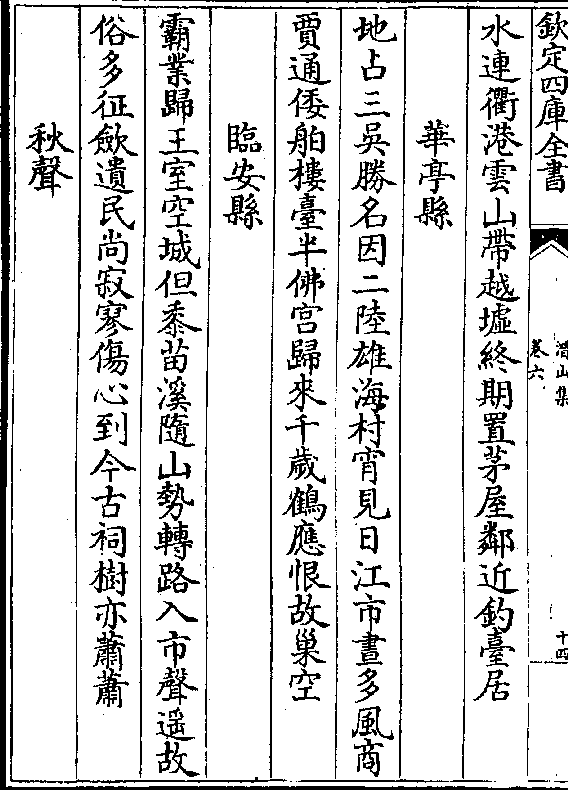 欽定四庫全書
潛山集
卷六
十四
水連衢港雲山帶越墟終期置茅屋鄰近釣臺居
華亭縣
地占三吳勝名因二陸雄海村宵見日江市晝多風商
賈通倭舶樓臺半佛宮歸來千歲鶴應恨故巢空
臨安縣
霸業歸王室空城但黍苗溪隨山勢轉路入市聲遥故
俗多征歛遺民尚寂寥傷心到今古祠樹亦蕭蕭
秋聲